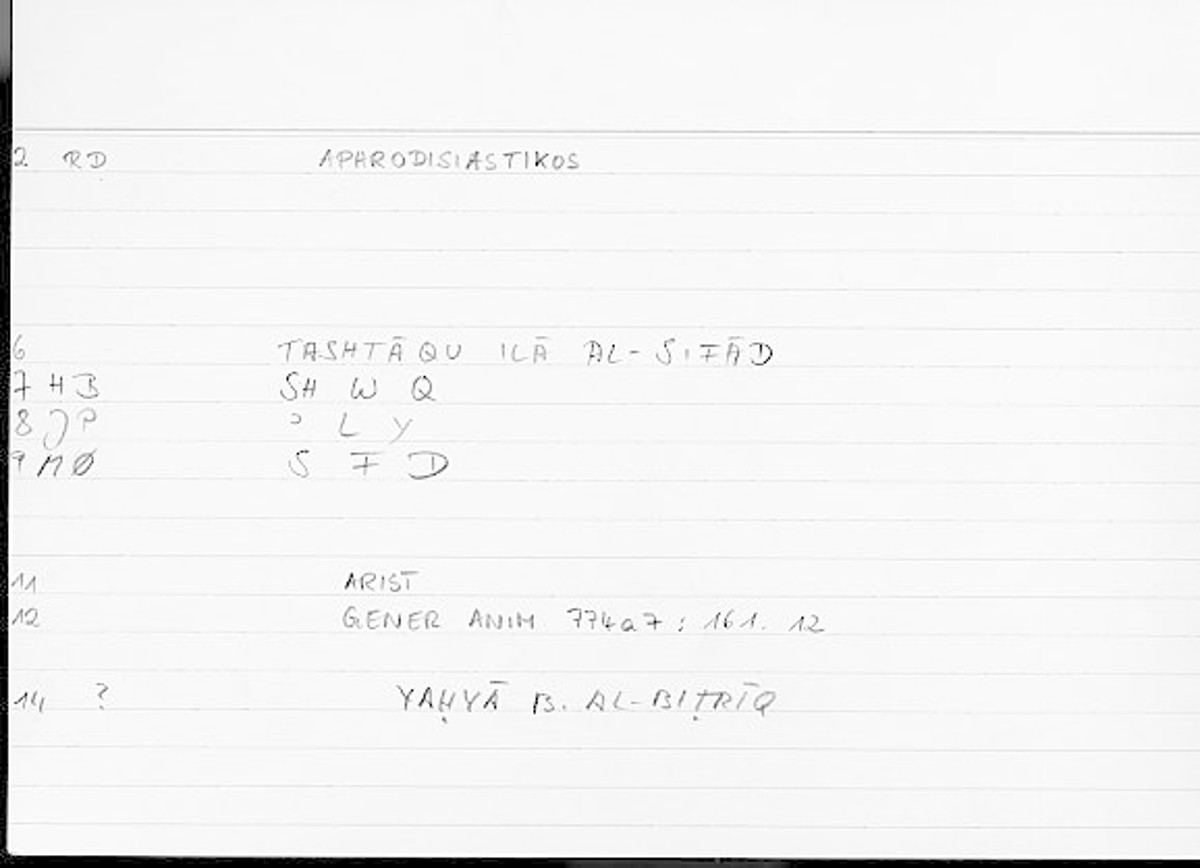 2 RD APHRODISIASTIKOS
6 TASHTĀQU ILĀ AL-SIFĀD
7 HB SH W Q
8 JP ɔ L Y
9 MØ S F D
11 ARIST
12 GENER ANIM 774a7 : 161. 12
14 ? YAḤYĀ B. AL-BIṬRĪQ